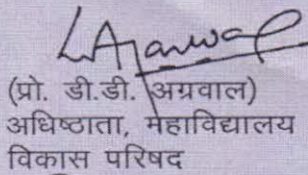 (प्रो. डी.डी. अग्रवाल)
अधिष्ठाता, महाविद्यालय
विकास परिषद